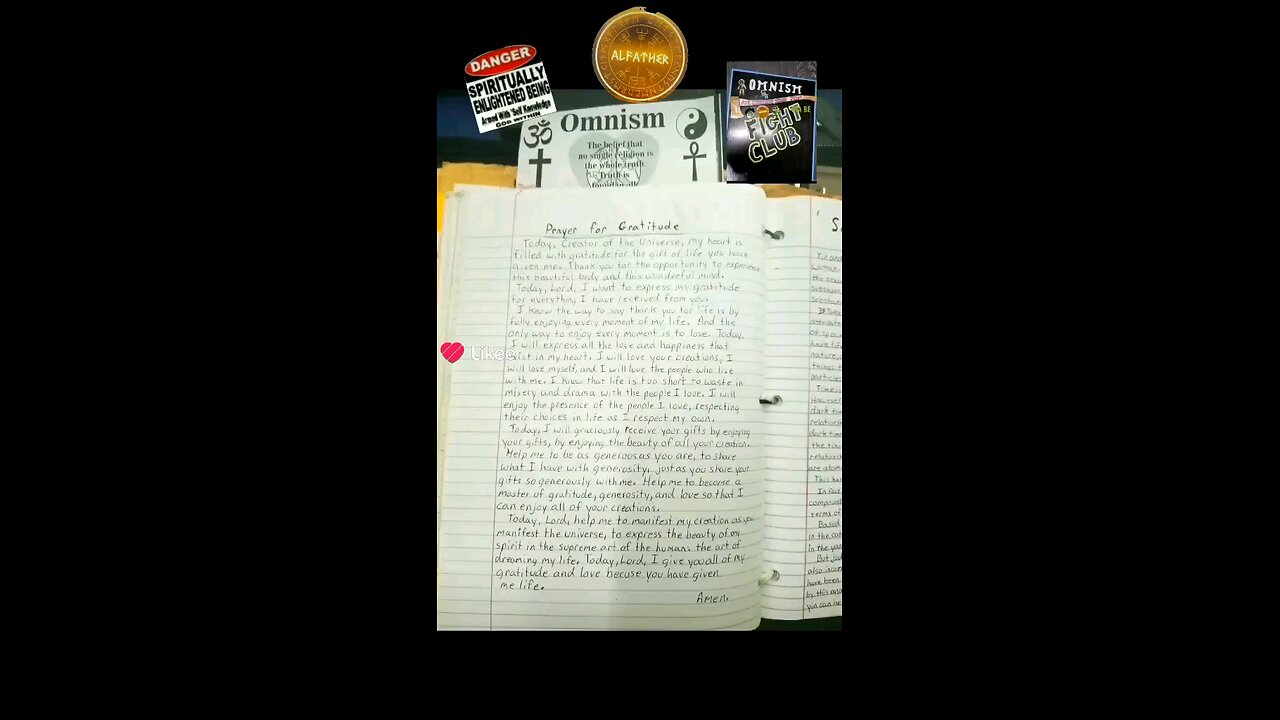 ALFATHER
DANGER
SPIRITUALLY
ENLIGHTENED BEING
Armed With Self Knowledge
GOD WITHIN
OMNISM
BE
FIGHT
CLUB
Omnism
The belief that
no single religion is
the whole truth.
Truth is
found in all
Prayer for Gratitude
Today, Creator of the Universe, my heart is
filled with gratitude for the gift of life you have
given me. Thank you for the opportunity to experience
this beautiful body and this wonderful mind.
Today, Lord, I want to express my gratitude
for everything I have received from you.
I know the way to say thank you for life is by
fully enjoying every moment of my life. And the
only way to enjoy every moment is to love. Today,
I will express all the love and happiness that
exist in my heart. I will love your creations, I
will love myself, and I will love the people who live
with me. I know that life is too short to waste in
misery and drama with the people I love. I will
enjoy the presence of the people I love, respecting
their choices in life as I respect my own.
Today, I will graciously receive your gifts by enjoying
your gifts, by enjoying the beauty of all your creation.
Help me to be as generous as you are, to share
what I have with generosity, just as you share your
gifts so generously with me. Help me to become a
master of gratitude, generosity, and love so that I
can enjoy all of your creations.
Today, Lord, help me to manifest my creation as you
manifest the universe, to express the beauty of my
spirit in the supreme art of the human: the art of
dreaming my life. Today, Lord, I give you all of my
gratitude and love becuse you have given
me life.
Amen.
Likee
Yin and
woman,
the
substan
substan
Take
attribute
of speci
have lif
nature,
things t
particles
Time is
However
dark tim
relation
dark tim
the
relative
are atom
This ha
In fact,
compose
terms of
Based
in the
in the yan
But jus
also in
have been
by this and
yin can be